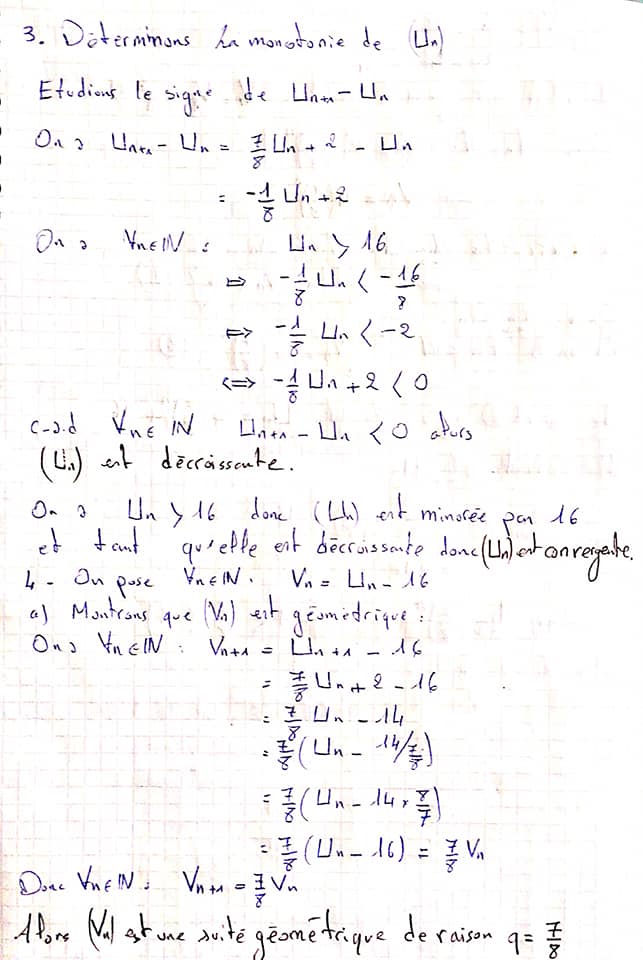 3. Déterminons la monotonie de (Un)
Etudions le signe de Un+1 - Un
On a Un+1 - Un = 7/8 Un + 2 - Un
= -1/8 Un + 2
On a ∀n∈IN : Un > 16
⇔ -1/8 Un < -16/8
⇔ -1/8 Un < -2
⇔ -1/8 Un + 2 < 0
c-a-d ∀n∈IN Un+1 - Un < 0 alors
(Un) est décroissante.
On a Un > 16 donc (Un) est minorée par 16
et tant qu'elle est décroissante donc (Un) est convergente.
4 - On pose ∀n∈IN. Vn = Un - 16
a) Montrons que (Vn) est géométrique :
On a ∀n∈IN : Vn+1 = Un+1 - 16
= 7/8 Un + 2 - 16
= 7/8 Un - 14
= 7/8 (Un - 14/7/8)
= 7/8 (Un - 14 × 8/7)
= 7/8 (Un - 16) = 7/8 Vn
Donc ∀n∈IN : Vn+1 = 7/8 Vn
Alors (Vn) est une suite géométrique de raison q = 7/8